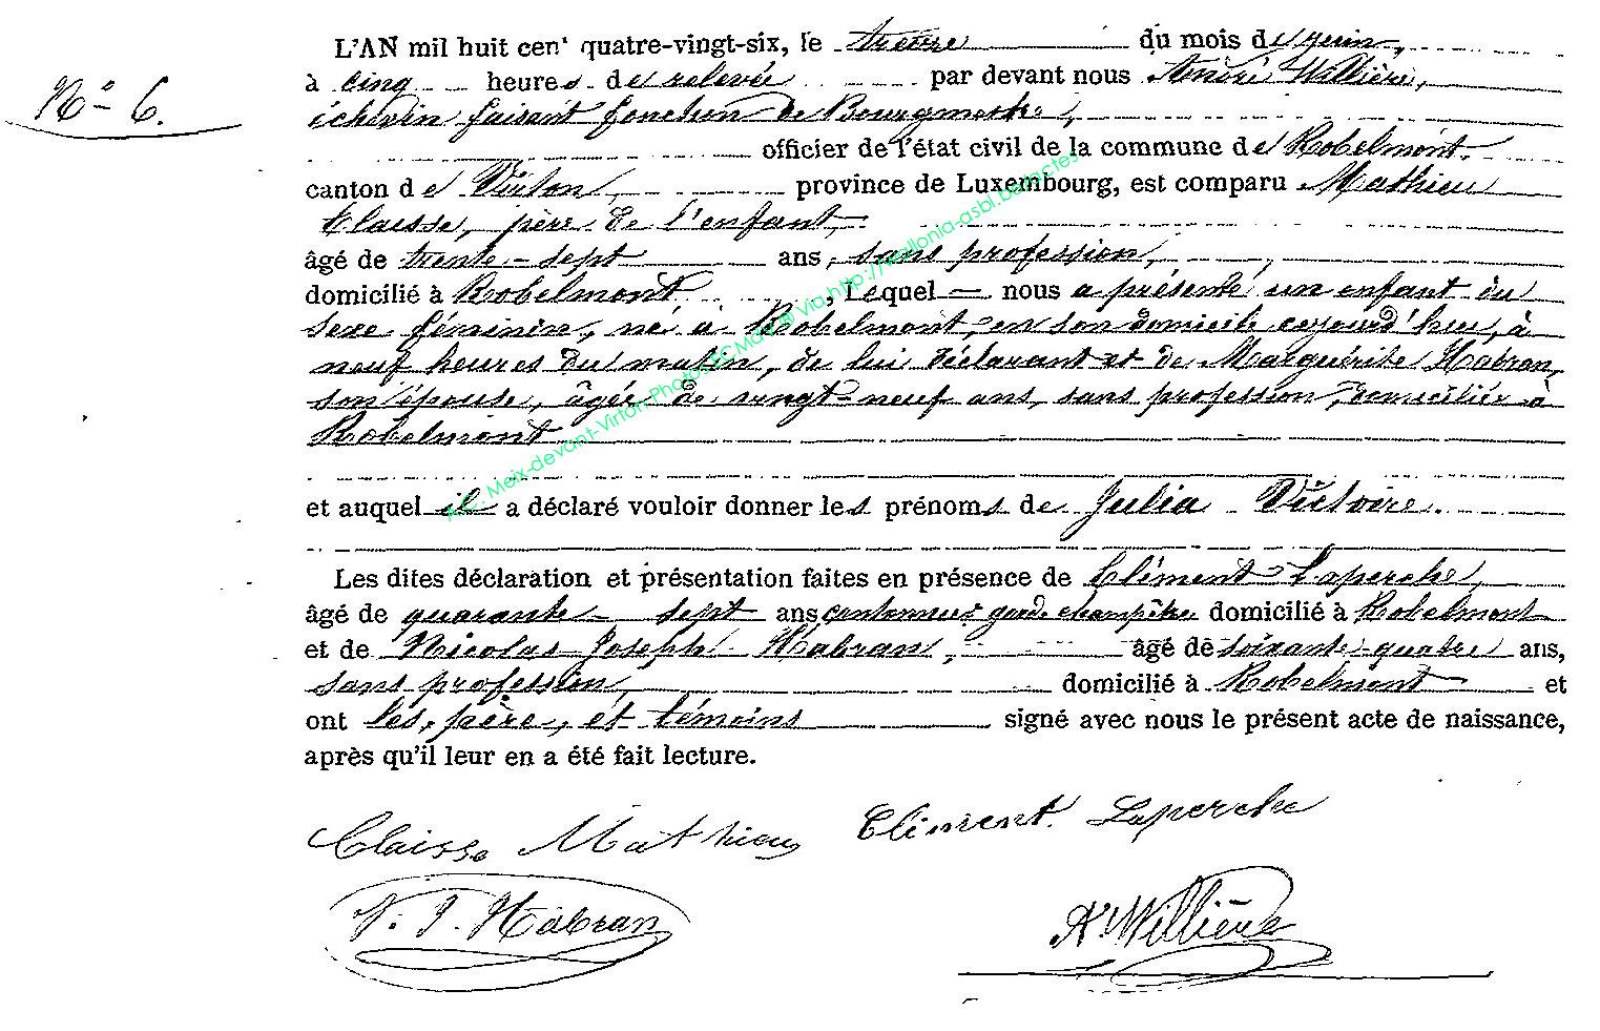 N° 6.
L'AN mil huit cent quatre-vingt-six, le treize du mois de juin,
à cinq heures de relevée par devant nous André Willière,
échevin faisant fonction de Bourgmestre,
officier de l'état civil de la commune de Robelmont.
canton de Virton, province de Luxembourg, est comparu Mathieu
Claisse, père de l'enfant,
âgé de trente-sept ans, sans profession,
domicilié à Robelmont, lequel nous a présenté un enfant du
sexe féminin, né à Robelmont, en son domicile cejourd'hui, à
neuf heures du matin, de lui déclarant et de Marguérite Habran,
son épouse, âgée de vingt-neuf ans, sans profession, domiciliée à
Robelmont
et auquel il a déclaré vouloir donner les prénoms de Julia Victoire.
Les dites déclaration et présentation faites en présence de Clément Laperche,
âgé de quarante-sept ans cantonnier garde champêtre domicilié à Robelmont
et de Nicolas Joseph Habran, âgé de soixante-quatre ans,
sans profession, domicilié à Robelmont et
ont les, père, et témoins signé avec nous le présent acte de naissance,
après qu'il leur en a été fait lecture.
Claisse Mathieu Clément Laperche
N. J. Habran A. Willière
Meix-devant-Virton Photos via http://wallonia-asbl.be/actes